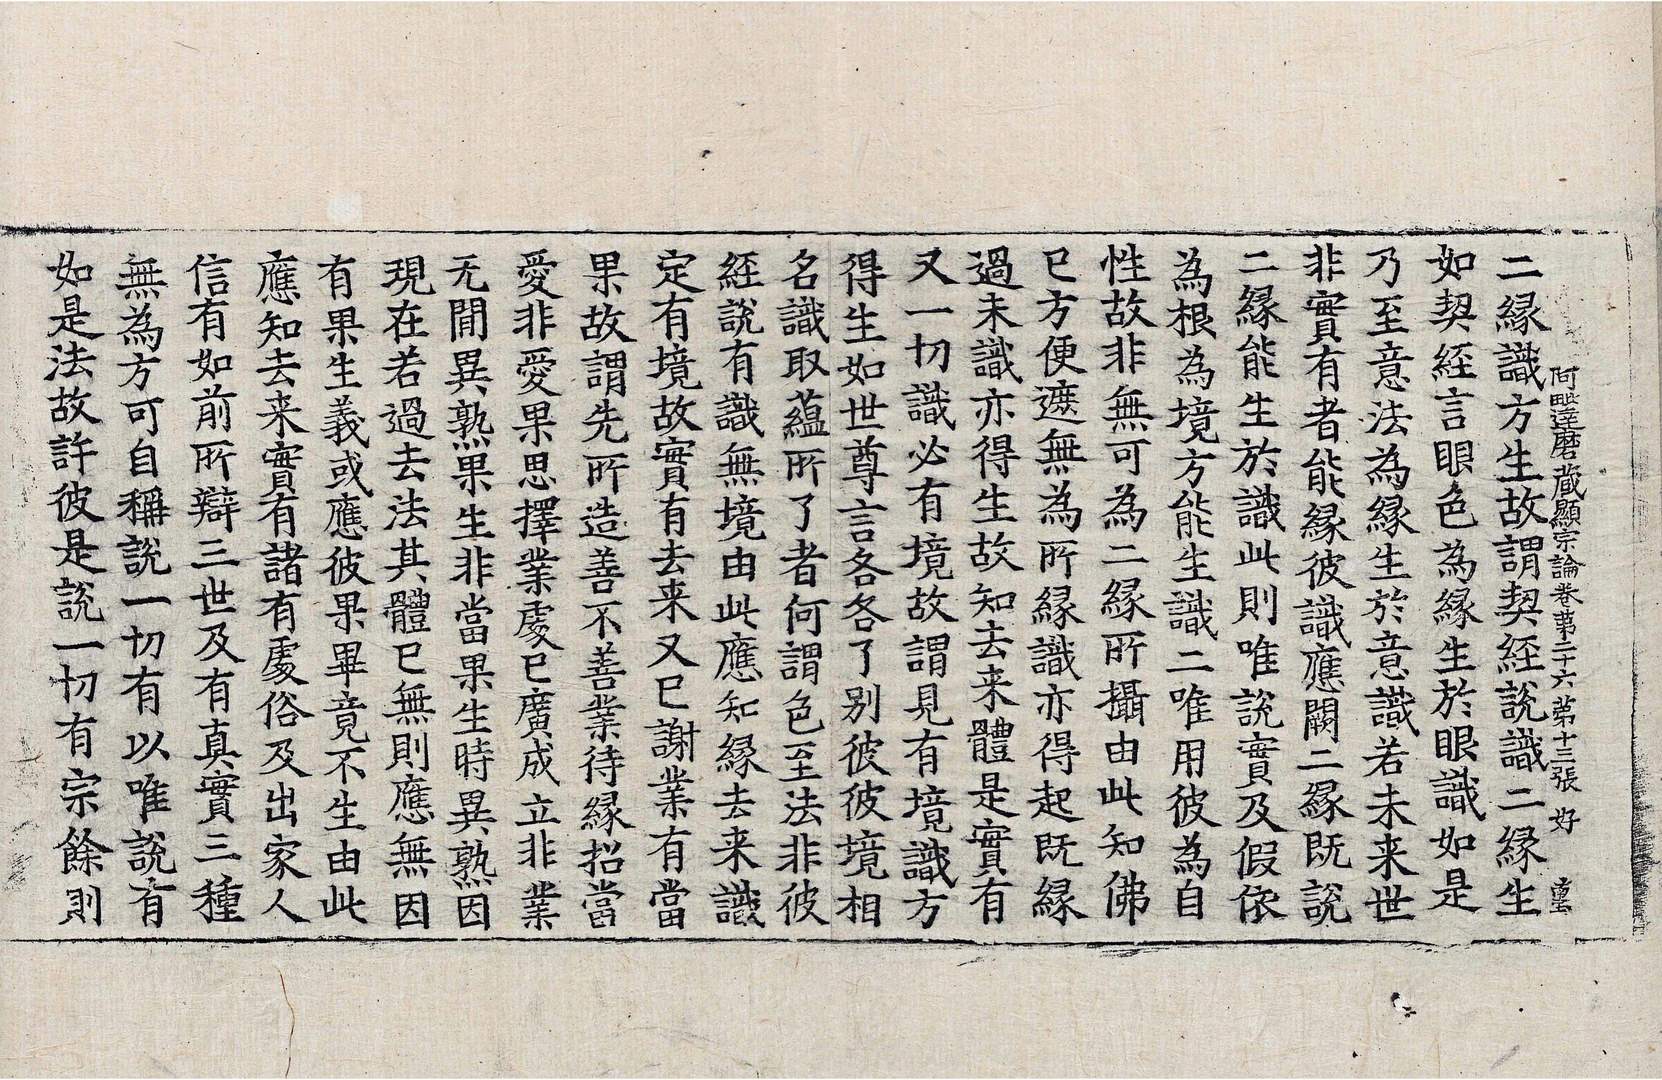 阿毗達磨藏顯宗論卷第二十六 第十三張 好
二緣識方生故謂契經說識二緣生
如契經言眼色為緣生於眼識如是
乃至意法為緣生於意識若未来世
非實有者能緣彼識應闕二緣既說
二緣能生於識此則唯說實及假依
為根為境方能生識二唯用彼為自
性故非無可為二緣所攝由此知佛
已方便遮無為所緣識亦得起既緣
過未識亦得生故知去来體是實有
又一切識必有境故謂見有境識方
得生如世尊言各各了别彼彼境相
名識取蘊所了者何謂色至法非彼
經說有識無境由此應知緣去来識
定有境故實有去来又已謝業有當
果故謂先所造善不善業待緣招當
愛非愛果思擇業處已廣成立非業
无間異熟果生非當果生時異熟因
現在若過去法其體已無則應無因
有果生義或應彼果畢竟不生由此
應知去来實有諸有處俗及出家人
信有如前所辯三世及有真實三種
無為方可自稱說一切有以唯說有
如是法故許彼是說一切有宗餘則